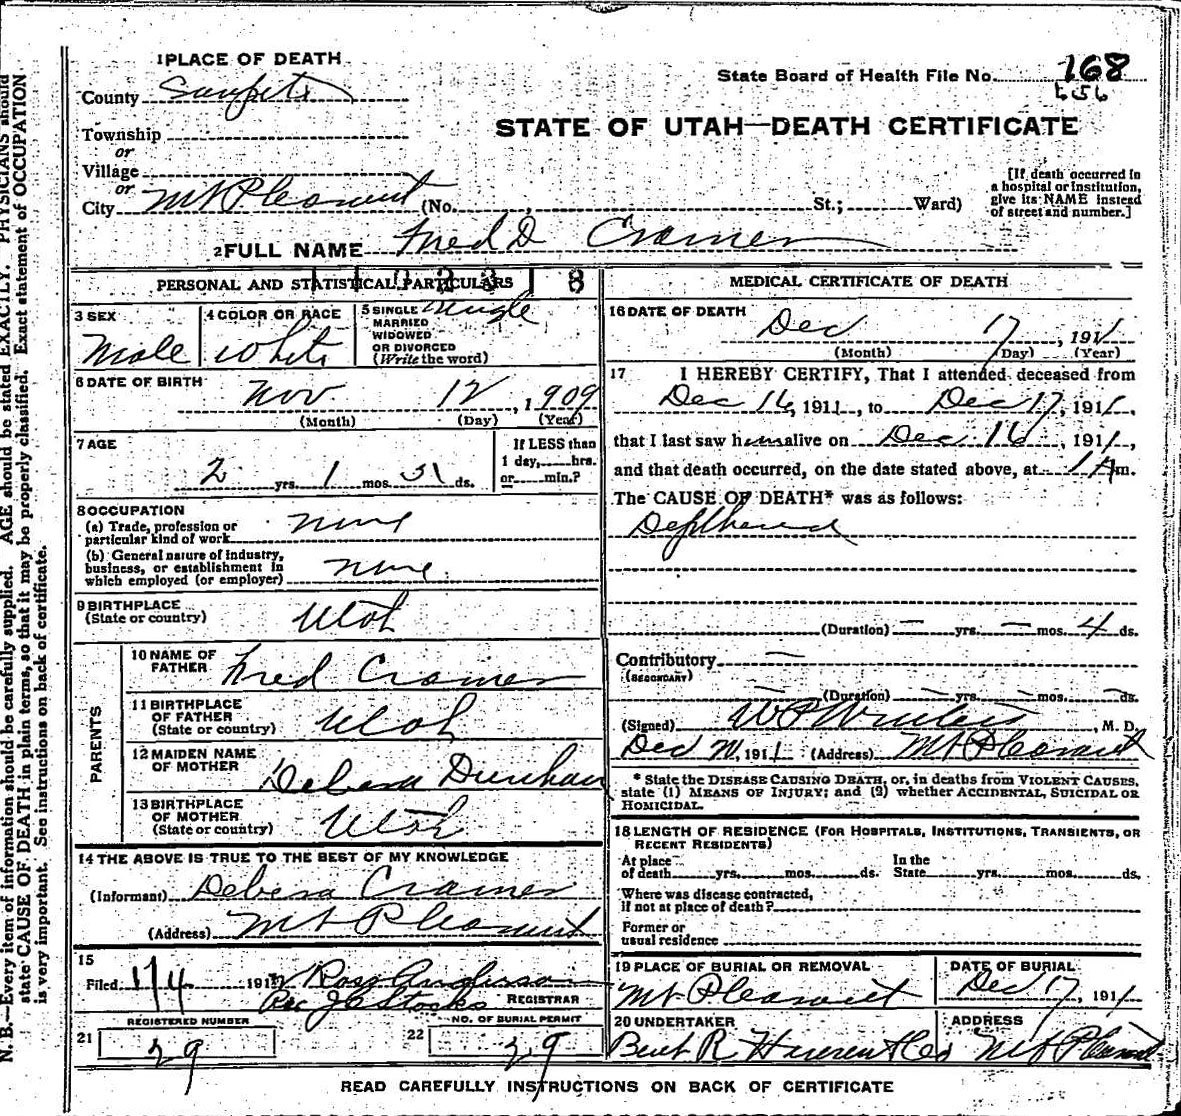 1 PLACE OF DEATH
County Sanpete
State Board of Health File No. 168
656
STATE OF UTAH—DEATH CERTIFICATE
Township
or
Village
or
City Mt Pleasant (No. , St.; Ward)
[If death occurred in
a hospital or institution,
give its NAME instead
of street and number.]
2 FULL NAME Fred D Cramer
PERSONAL AND STATISTICAL PARTICULARS
3 SEX
Male
4 COLOR OR RACE
White
5 SINGLE
MARRIED
WIDOWED
OR DIVORCED
(Write the word)
Single
6 DATE OF BIRTH
Nov 12, 1909
(Month) (Day) (Year)
7 AGE
2 yrs. 1 mos. ds.
If LESS than
1 day, hrs.
or min.?
8 OCCUPATION
(a) Trade, profession or
particular kind of work none
(b) General nature of industry,
business, or establishment in
which employed (or employer) none
9 BIRTHPLACE
(State or country) Utah
PARENTS
10 NAME OF
FATHER Fred Cramer
11 BIRTHPLACE
OF FATHER
(State or country) Utah
12 MAIDEN NAME
OF MOTHER Debera Dunham
13 BIRTHPLACE
OF MOTHER
(State or country) Utah
14 THE ABOVE IS TRUE TO THE BEST OF MY KNOWLEDGE
(Informant) Debera Cramer
(Address) Mt Pleasant
15
Filed 1/4 191 Ross Anderson
Per J C Stocks REGISTRAR
REGISTERED NUMBER
21 29
NO. OF BURIAL PERMIT
22 29
MEDICAL CERTIFICATE OF DEATH
16 DATE OF DEATH
Dec 17, 1911
(Month) (Day) (Year)
17 I HEREBY CERTIFY, That I attended deceased from
Dec 16, 1911, to Dec 17, 1911,
that I last saw him alive on Dec 16, 1911,
and that death occurred, on the date stated above, at 1 A m.
The CAUSE OF DEATH* was as follows:
Deptheria
(Duration) — yrs. — mos. 4 ds.
Contributory —
(SECONDARY)
(Duration) — yrs. — mos. — ds.
(Signed) W P Winters, M. D.
Dec , 1911 (Address) Mt Pleasant
* State the DISEASE CAUSING DEATH, or, in deaths from VIOLENT CAUSES,
state (1) MEANS OF INJURY; and (2) whether ACCIDENTAL, SUICIDAL OR
HOMICIDAL.
18 LENGTH OF RESIDENCE (FOR HOSPITALS, INSTITUTIONS, TRANSIENTS, OR
RECENT RESIDENTS)
At place
of death yrs. mos. ds.
In the
State yrs. mos. ds.
Where was disease contracted,
if not at place of death?
Former or
usual residence
19 PLACE OF BURIAL OR REMOVAL
Mt Pleasant
DATE OF BURIAL
Dec 17, 1911
20 UNDERTAKER
R
ADDRESS
Mt Pleasant
READ CAREFULLY INSTRUCTIONS ON BACK OF CERTIFICATE
N. B.—Every item of information should be carefully supplied. AGE should be stated EXACTLY. PHYSICIANS should
state CAUSE OF DEATH in plain terms, so that it may be properly classified. Exact statement of OCCUPATION
is very important. See instructions on back of certificate.